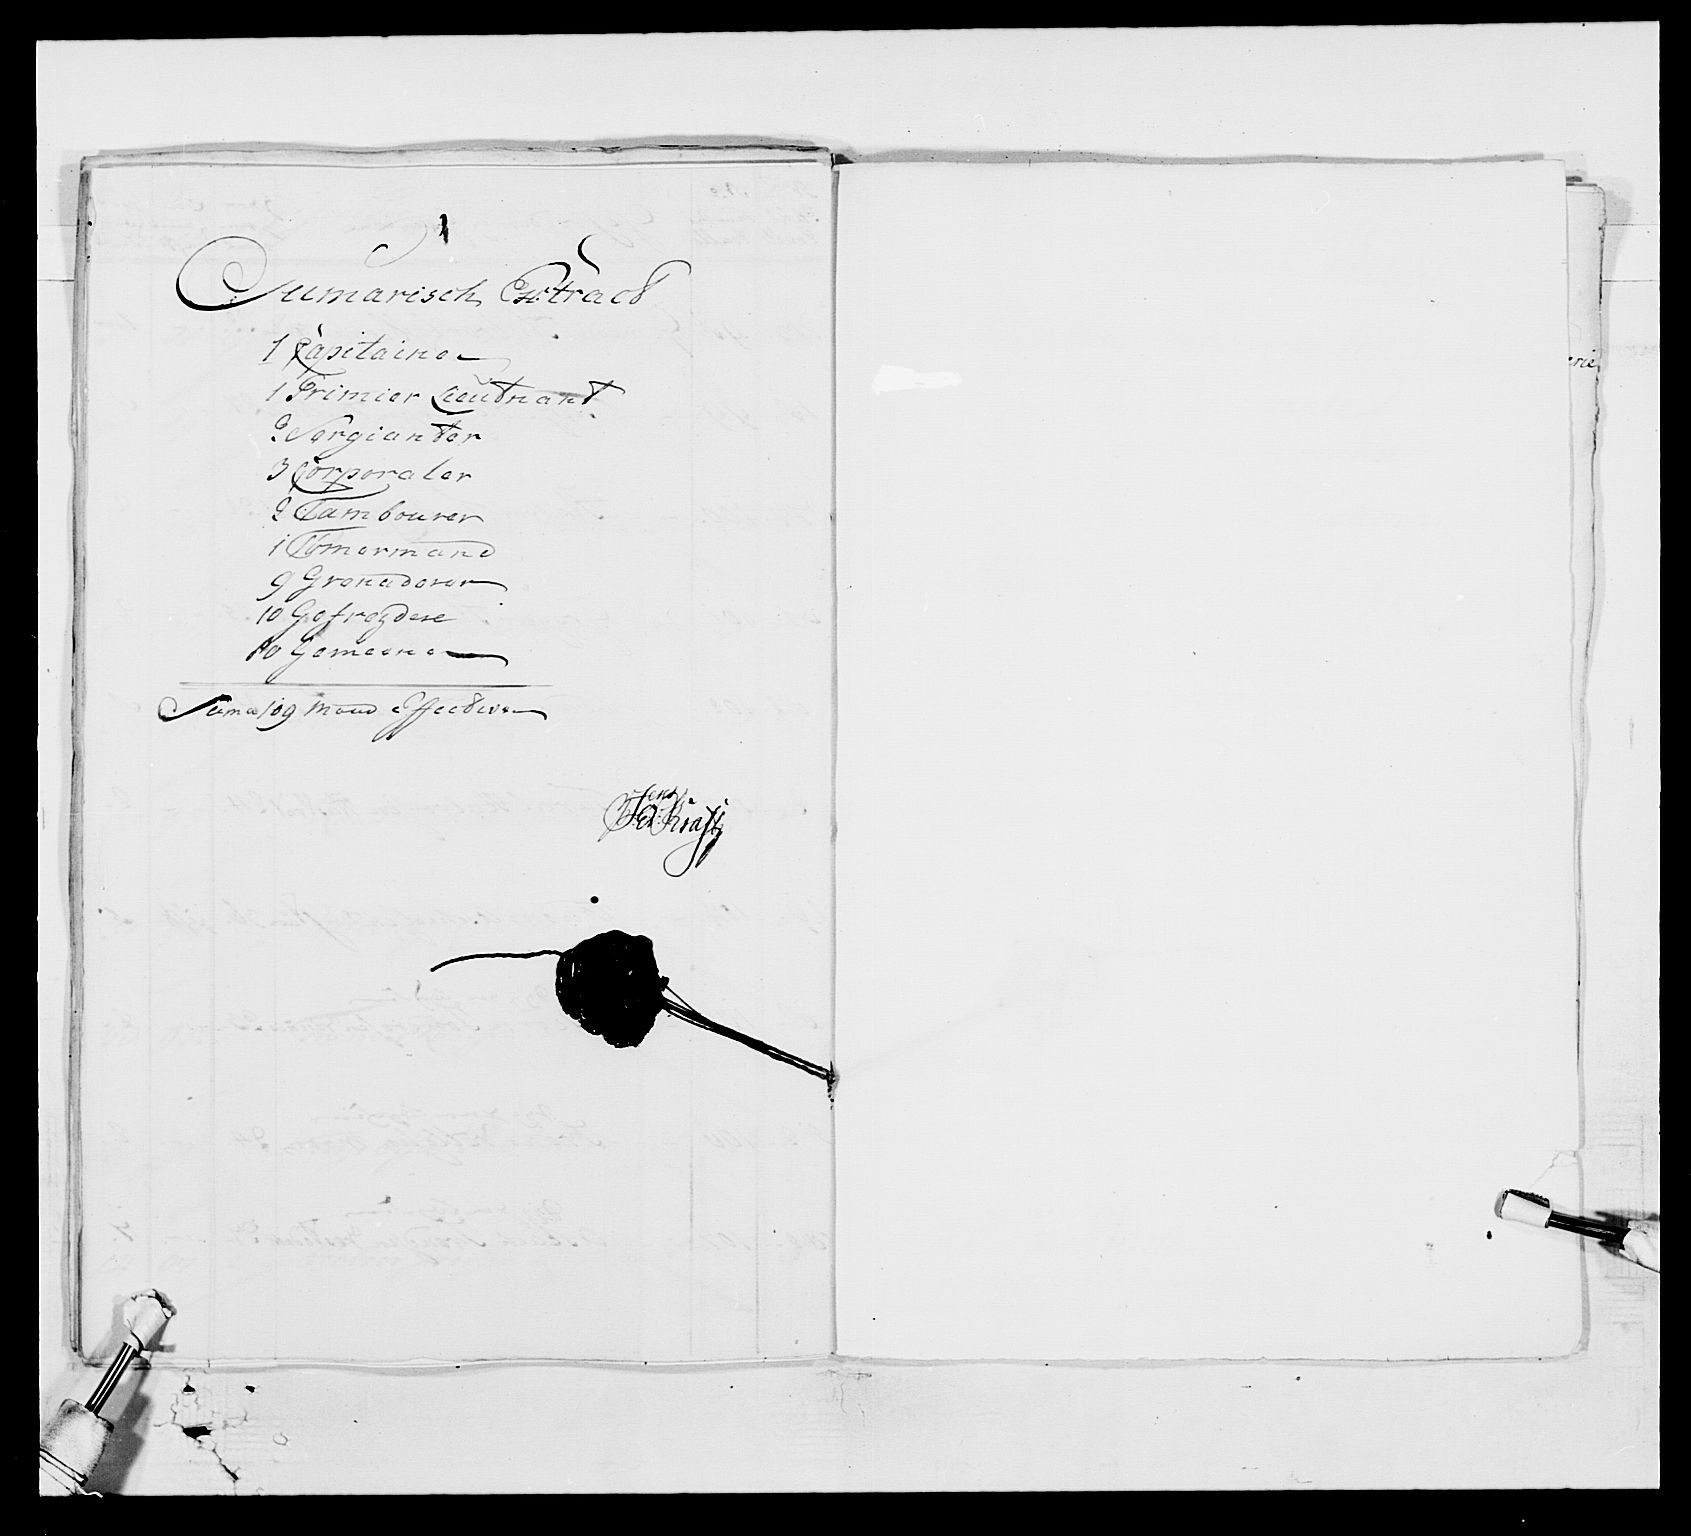 Sumarisch Extract
1 Capitaine
1 Primier Lieutnant
2 Sergianter
3 Corporaler
2 Tambourer
1 Tömermand
9 Grenaderer
10 Gefreydere
80 Gemeene
Suma 109 Mand Effective
Jens
Kraft